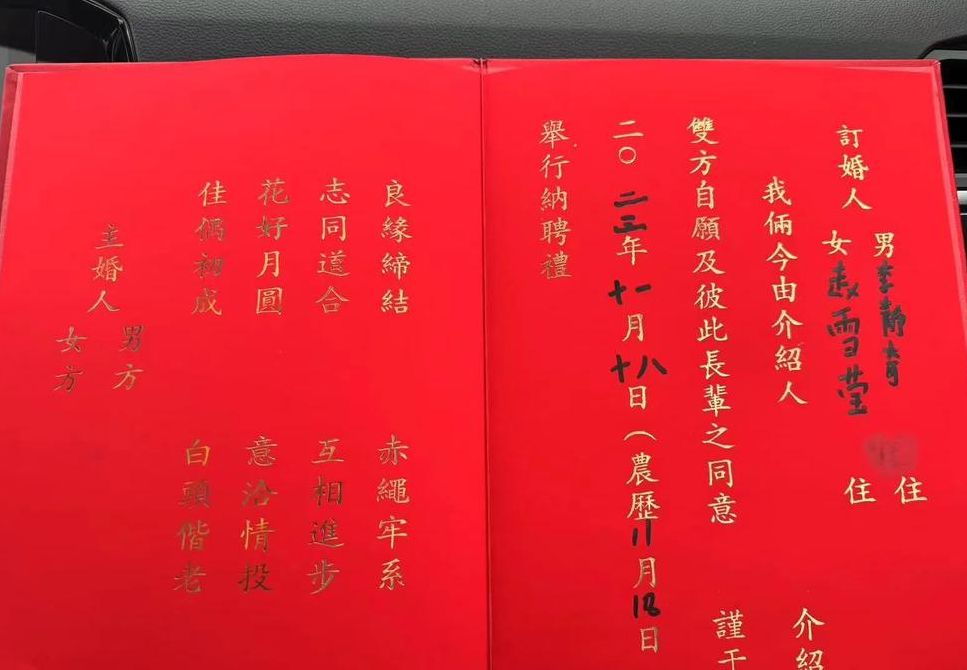 訂婚人
男 李静奇 住
女 赵雪莹 住
我倆今由介紹人 介紹
雙方自願及彼此長輩之同意 謹于
二〇二三年十一月十八日（農歷11月18日
舉行納聘禮
良緣締結 赤繩牢系
志同道合 互相進步
花好月圓 意洽情投
佳偶初成 白頭偕老
主婚人
男方
女方